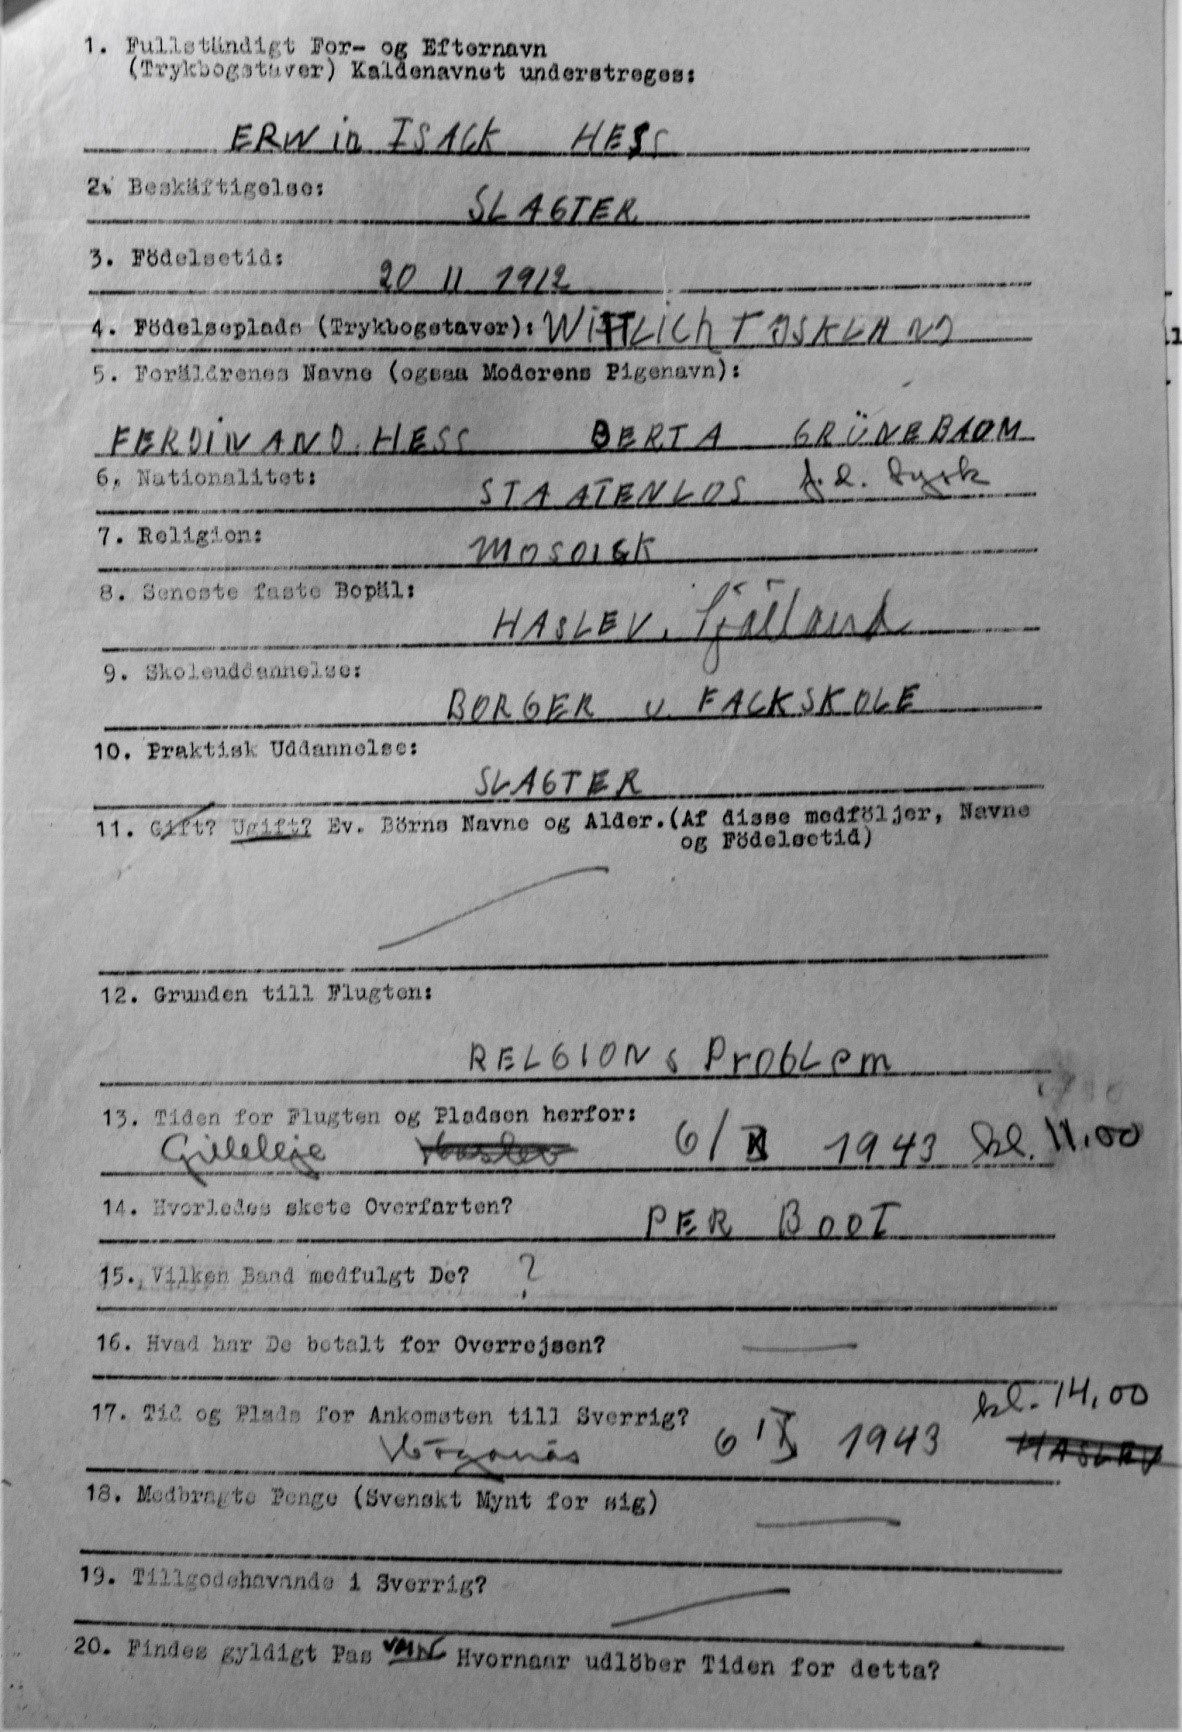 1. Fullständigt For- og Efternavn
(Trykbogstaver) Kaldenavnet understreges:
ERWin ISACK HESS
2. Beskäftigelse:
SLAGTER
3. Födelsetid:
20 11 1912
4. Födelseplads (Trykbogstaver): WiTTLICh TYSKLAND
5. Foräldrenes Navne (ogsaa Moderens Pigenavn):
FERDINAND. HESS BERTA GRÜNEBAUM
6. Nationalitet:
STAATENLOS f.d. tysk
7. Religion:
MOSAISK
8. Seneste faste Bopäl:
HASLEV. Själland
9. Skoleuddannelse:
BORGER u. FACKSKOLE
10. Praktisk Uddannelse:
SLAGTER
11. Gift? Ugift? Ev. Börns Navne og Alder.(Af disse medföljer, Navne
og Födelsetid)
12. Grunden till Flugten:
RELGIONs ProbLem
13. Tiden for Flugten og Pladsen herfor:
Gilleleje Haslev 6/X 1943 kl. 11.00
14. Hvorledes skete Overfarten?
PER BOOT
15. Vilken Baad medfulgt De? ?
16. Hvad har De betalt for Overrejsen?
kl. 14,00
17. Tid og Plads for Ankomsten till Sverrig?
Höganäs 6 X 1943 HASLEV
18. Medbragte Penge (Svenskt Mynt for sig)
19. Tillgodehavande i Sverrig?
20. Findes gyldigt Pas Hvornaar udlöber Tiden for detta?